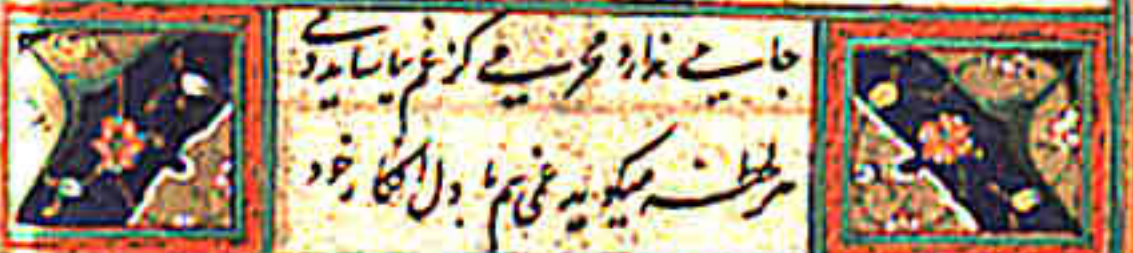 جامی ندارد محرمی کز غم بیاساید دمی
هر لحظه میگوید غمی هم با دل افکار خود